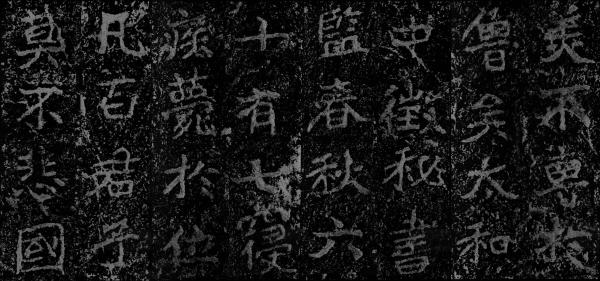 美不專於
魯矣太和
中徵秘書
監春秋六
十有七寢
疾薨於位
凡百君子
莫不悲國